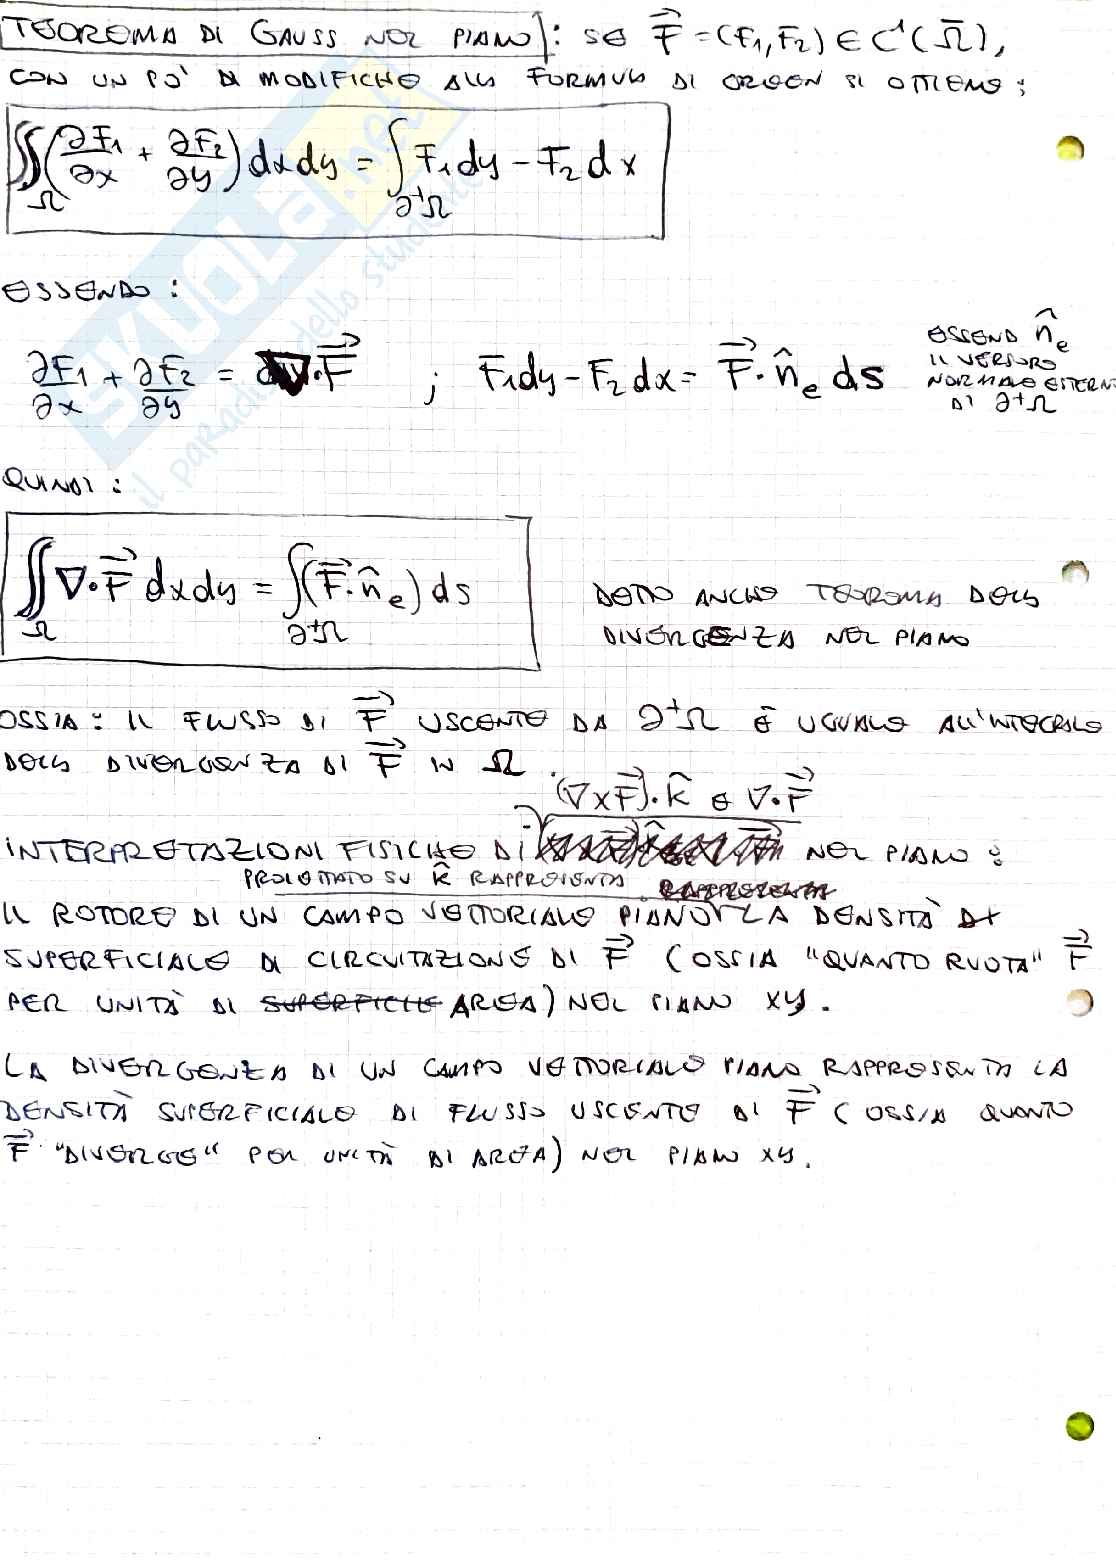 TEOREMA DI GAUSS NEL PIANO: SE F⃗ = (F₁, F₂) ∈ C¹(Ω̄),
CON UN PO' DI MODIFICHE ALLA FORMULA DI GREEN SI OTTIENE:
∬_Ω (∂F₁/∂x + ∂F₂/∂y) dxdy = ∫_∂⁺Ω F₁dy - F₂dx
ESSENDO:
∂F₁/∂x + ∂F₂/∂y = ∇·F⃗ ; F₁dy - F₂dx = F⃗·n̂ₑ ds
ESSENDO n̂ₑ
IL VERSORE
NORMALE ESTERNO
DI ∂⁺Ω
QUINDI:
∬_Ω ∇·F⃗ dxdy = ∫_∂⁺Ω (F⃗·n̂ₑ) ds
DETTO ANCHE TEOREMA DELLA
DIVERGENZA NEL PIANO
OSSIA: IL FLUSSO DI F⃗ USCENTE DA ∂⁺Ω È UGUALE ALL'INTEGRALE
DELLA DIVERGENZA DI F⃗ IN Ω.
(∇×F⃗)·k̂ E ∇·F⃗
INTERPRETAZIONI FISICHE DI NEL PIANO:
PROIETTATO SU k̂ RAPPRESENTA RAPPRESENTA
IL ROTORE DI UN CAMPO VETTORIALE PIANO LA DENSITÀ DI
SUPERFICIALE DI CIRCUITAZIONE DI F⃗ (OSSIA "QUANTO RUOTA" F⃗
PER UNITÀ DI SUPERFICIE AREA) NEL PIANO XY.
LA DIVERGENZA DI UN CAMPO VETTORIALE PIANO RAPPRESENTA LA
DENSITÀ SUPERFICIALE DI FLUSSO USCENTE DI F⃗ (OSSIA QUANTO
F⃗ "DIVERGE" PER UNITÀ DI AREA) NEL PIANO XY.
SKUOLA.net
il paradiso dello studente